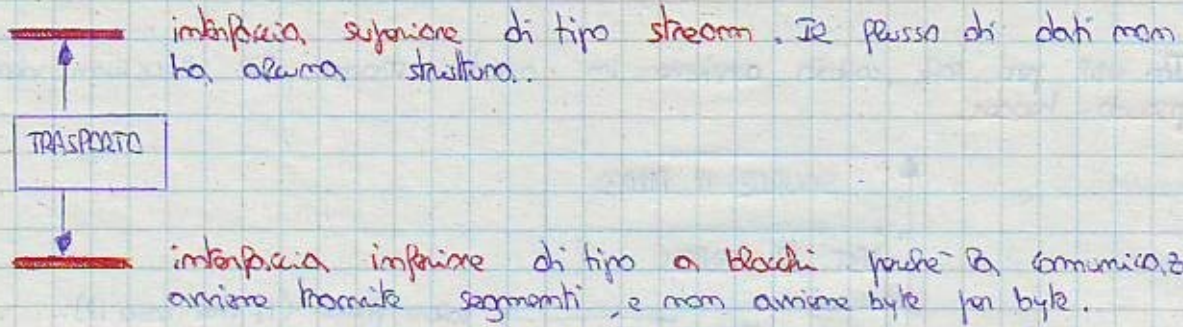 interfaccia superiore di tipo stream. Il flusso di dati non
ha alcuna struttura.
TRASPORTO
interfaccia inferiore di tipo a blocchi perché la comunicaz
avviene tramite segmenti, e non avviene byte per byte.